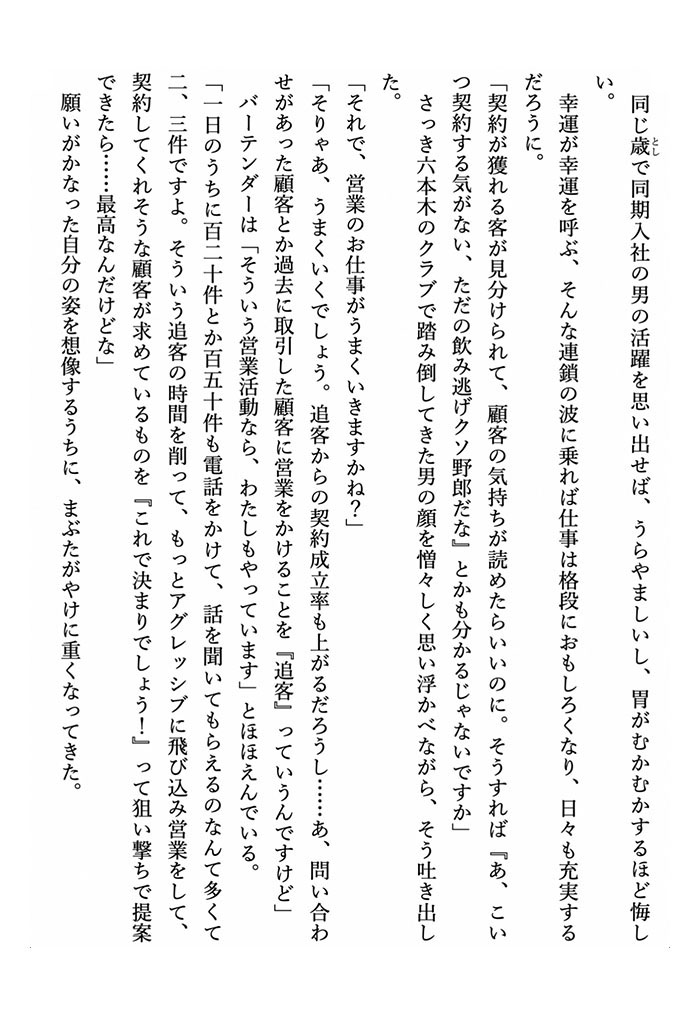 同じ歳で同期入社の男の活躍を思い出せば、うらやましいし、胃がむかむかするほど悔し
とし
い。
幸運が幸運を呼ぶ、そんな連鎖の波に乗れば仕事は格段におもしろくなり、日々も充実する
だろうに。
「契約が獲れる客が見分けられて、顧客の気持ちが読めたらいいのに。そうすれば『あ、こい
つ契約する気がない、ただの飲み逃げクソ野郎だな』とかも分かるじゃないですか」
さっき六本木のクラブで踏み倒してきた男の顔を憎々しく思い浮かべながら、そう吐き出し
た。
「それで、営業のお仕事がうまくいきますかね？」
「そりゃあ、うまくいくでしょう。追客からの契約成立率も上がるだろうし……あ、問い合わ
せがあった顧客とか過去に取引した顧客に営業をかけることを『追客』っていうんですけど」
バーテンダーは「そういう営業活動なら、わたしもやっています」とほほえんでいる。
「一日のうちに百二十件とか百五十件も電話をかけて、話を聞いてもらえるのなんて多くて
二、三件ですよ。そういう追客の時間を削って、もっとアグレッシブに飛び込み営業をして、
契約してくれそうな顧客が求めているものを『これで決まりでしょう！』って狙い撃ちで提案
できたら……最高なんだけどな」
願いがかなった自分の姿を想像するうちに、まぶたがやけに重くなってきた。